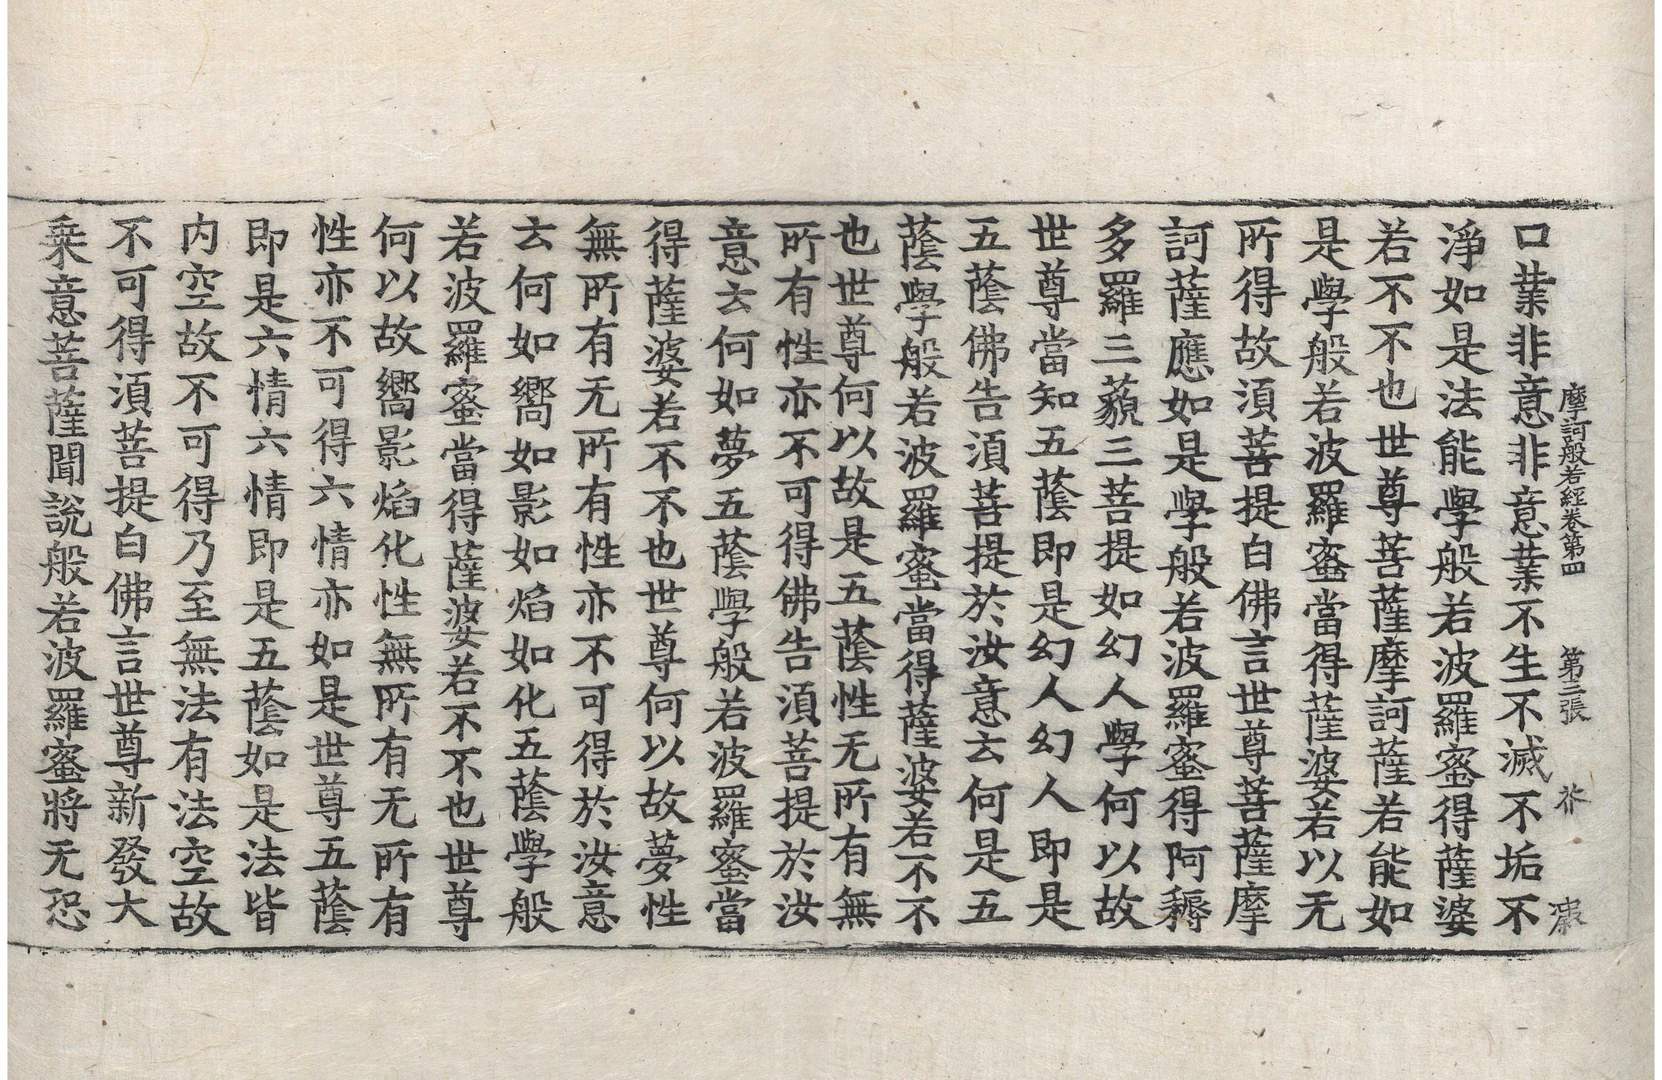 摩訶般若經卷第四 第三張 芥
口業非意非意業不生不滅不垢不
淨如是法能學般若波羅蜜得薩婆
若不不也世尊菩薩摩訶薩若能如
是學般若波羅蜜當得薩婆若以无
所得故須菩提白佛言世尊菩薩摩
訶薩應如是學般若波羅蜜得阿耨
多羅三藐三菩提如幻人學何以故
世尊當知五蔭即是幻人幻人即是
五蔭佛告須菩提於汝意云何是五
蔭學般若波羅蜜當得薩婆若不不
也世尊何以故是五蔭性无所有無
所有性亦不可得佛告須菩提於汝
意云何如夢五蔭學般若波羅蜜當
得薩婆若不不也世尊何以故夢性
無所有无所有性亦不可得於汝意
云何如嚮如影如焰如化五蔭學般
若波羅蜜當得薩婆若不不也世尊
何以故嚮影焰化性無所有无所有
性亦不可得六情亦如是世尊五蔭
即是六情六情即是五蔭如是法皆
内空故不可得乃至無法有法空故
不可得須菩提白佛言世尊新發大
乗意菩薩聞說般若波羅蜜將无恐